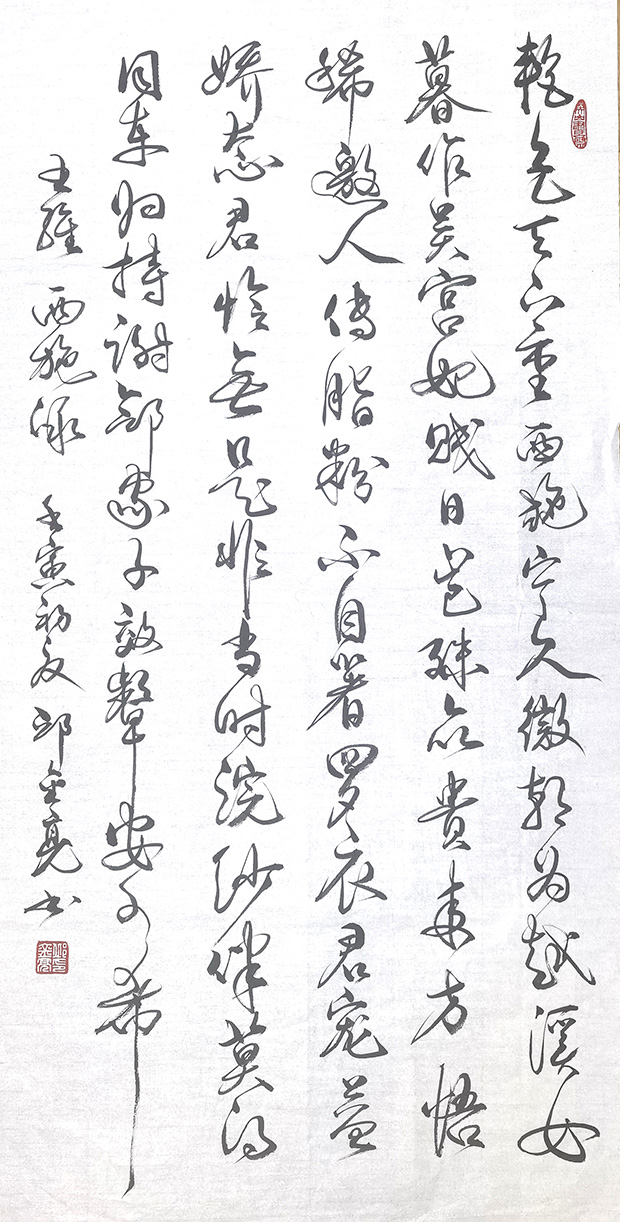 艳色天下重西施宁久微朝为越溪女
暮作吴宫妃贱日岂殊众贵来方悟
稀邀人傅脂粉不自著罗衣君宠益
娇态君怜无是非当时浣纱伴莫得
同车归持谢邻家子效颦安可希
王维 西施咏 壬寅初夏 邱金亮书